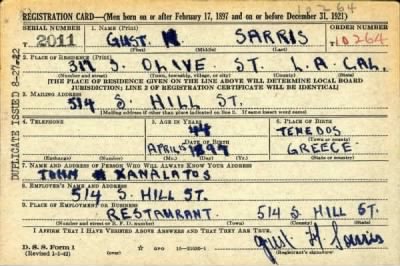 10264
REGISTRATION CARD—(Men born on or after February 17, 1897 and on or before December 31, 1921)
SERIAL NUMBER 1. NAME (Print) ORDER NUMBER
2011 GUST H SARRIS 10264
(First) (Middle) (Last)
2. PLACE OF RESIDENCE (Print)
S. OLIVE ST. L.A. CAL.
(Number and street) (Town, township, village, or city) (County) (State)
[THE PLACE OF RESIDENCE GIVEN ON THE LINE ABOVE WILL DETERMINE LOCAL BOARD
JURISDICTION; LINE 2 OF REGISTRATION CERTIFICATE WILL BE IDENTICAL]
3. MAILING ADDRESS
514 S. HILL ST.
[Mailing address if other than place indicated on line 2. If same insert word same]
4. TELEPHONE 5. AGE IN YEARS 6. PLACE OF BIRTH
44 TENEDOS
DATE OF BIRTH (Town or county)
APRIL 5 GREECE
(Exchange) (Number) (Mo.) (Day) (Yr.) (State or country)
7. NAME AND ADDRESS OF PERSON WHO WILL ALWAYS KNOW YOUR ADDRESS
JOHN KANALATOS
8. EMPLOYER'S NAME AND ADDRESS
514 S. HILL ST.
9. PLACE OF EMPLOYMENT OR BUSINESS
RESTAURANT 514 S. HILL ST.
(Number and street or R. F. D. number) (Town) (County) (State)
I AFFIRM THAT I HAVE VERIFIED ABOVE ANSWERS AND THAT THEY ARE TRUE.
D. S. S. Form 1 GPO
(Revised 1-1-42) (over) (Registrant's signature)
Gust H Sarris
DUPLICATE ISSUED